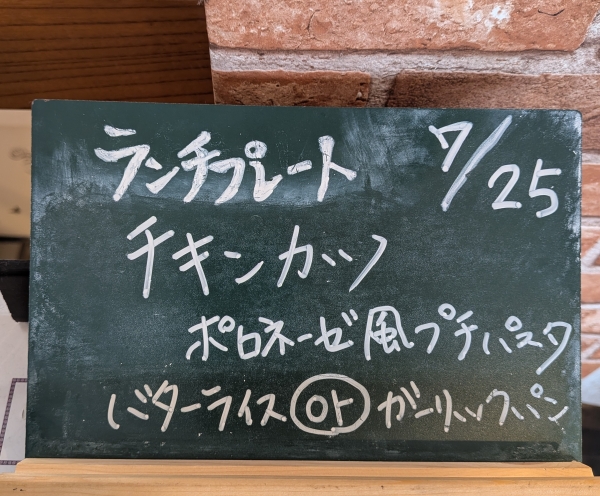 ランチプレート 7/25
チキンカツ
ポロネーゼ風プチパスタ
バターライス or ガーリックパン